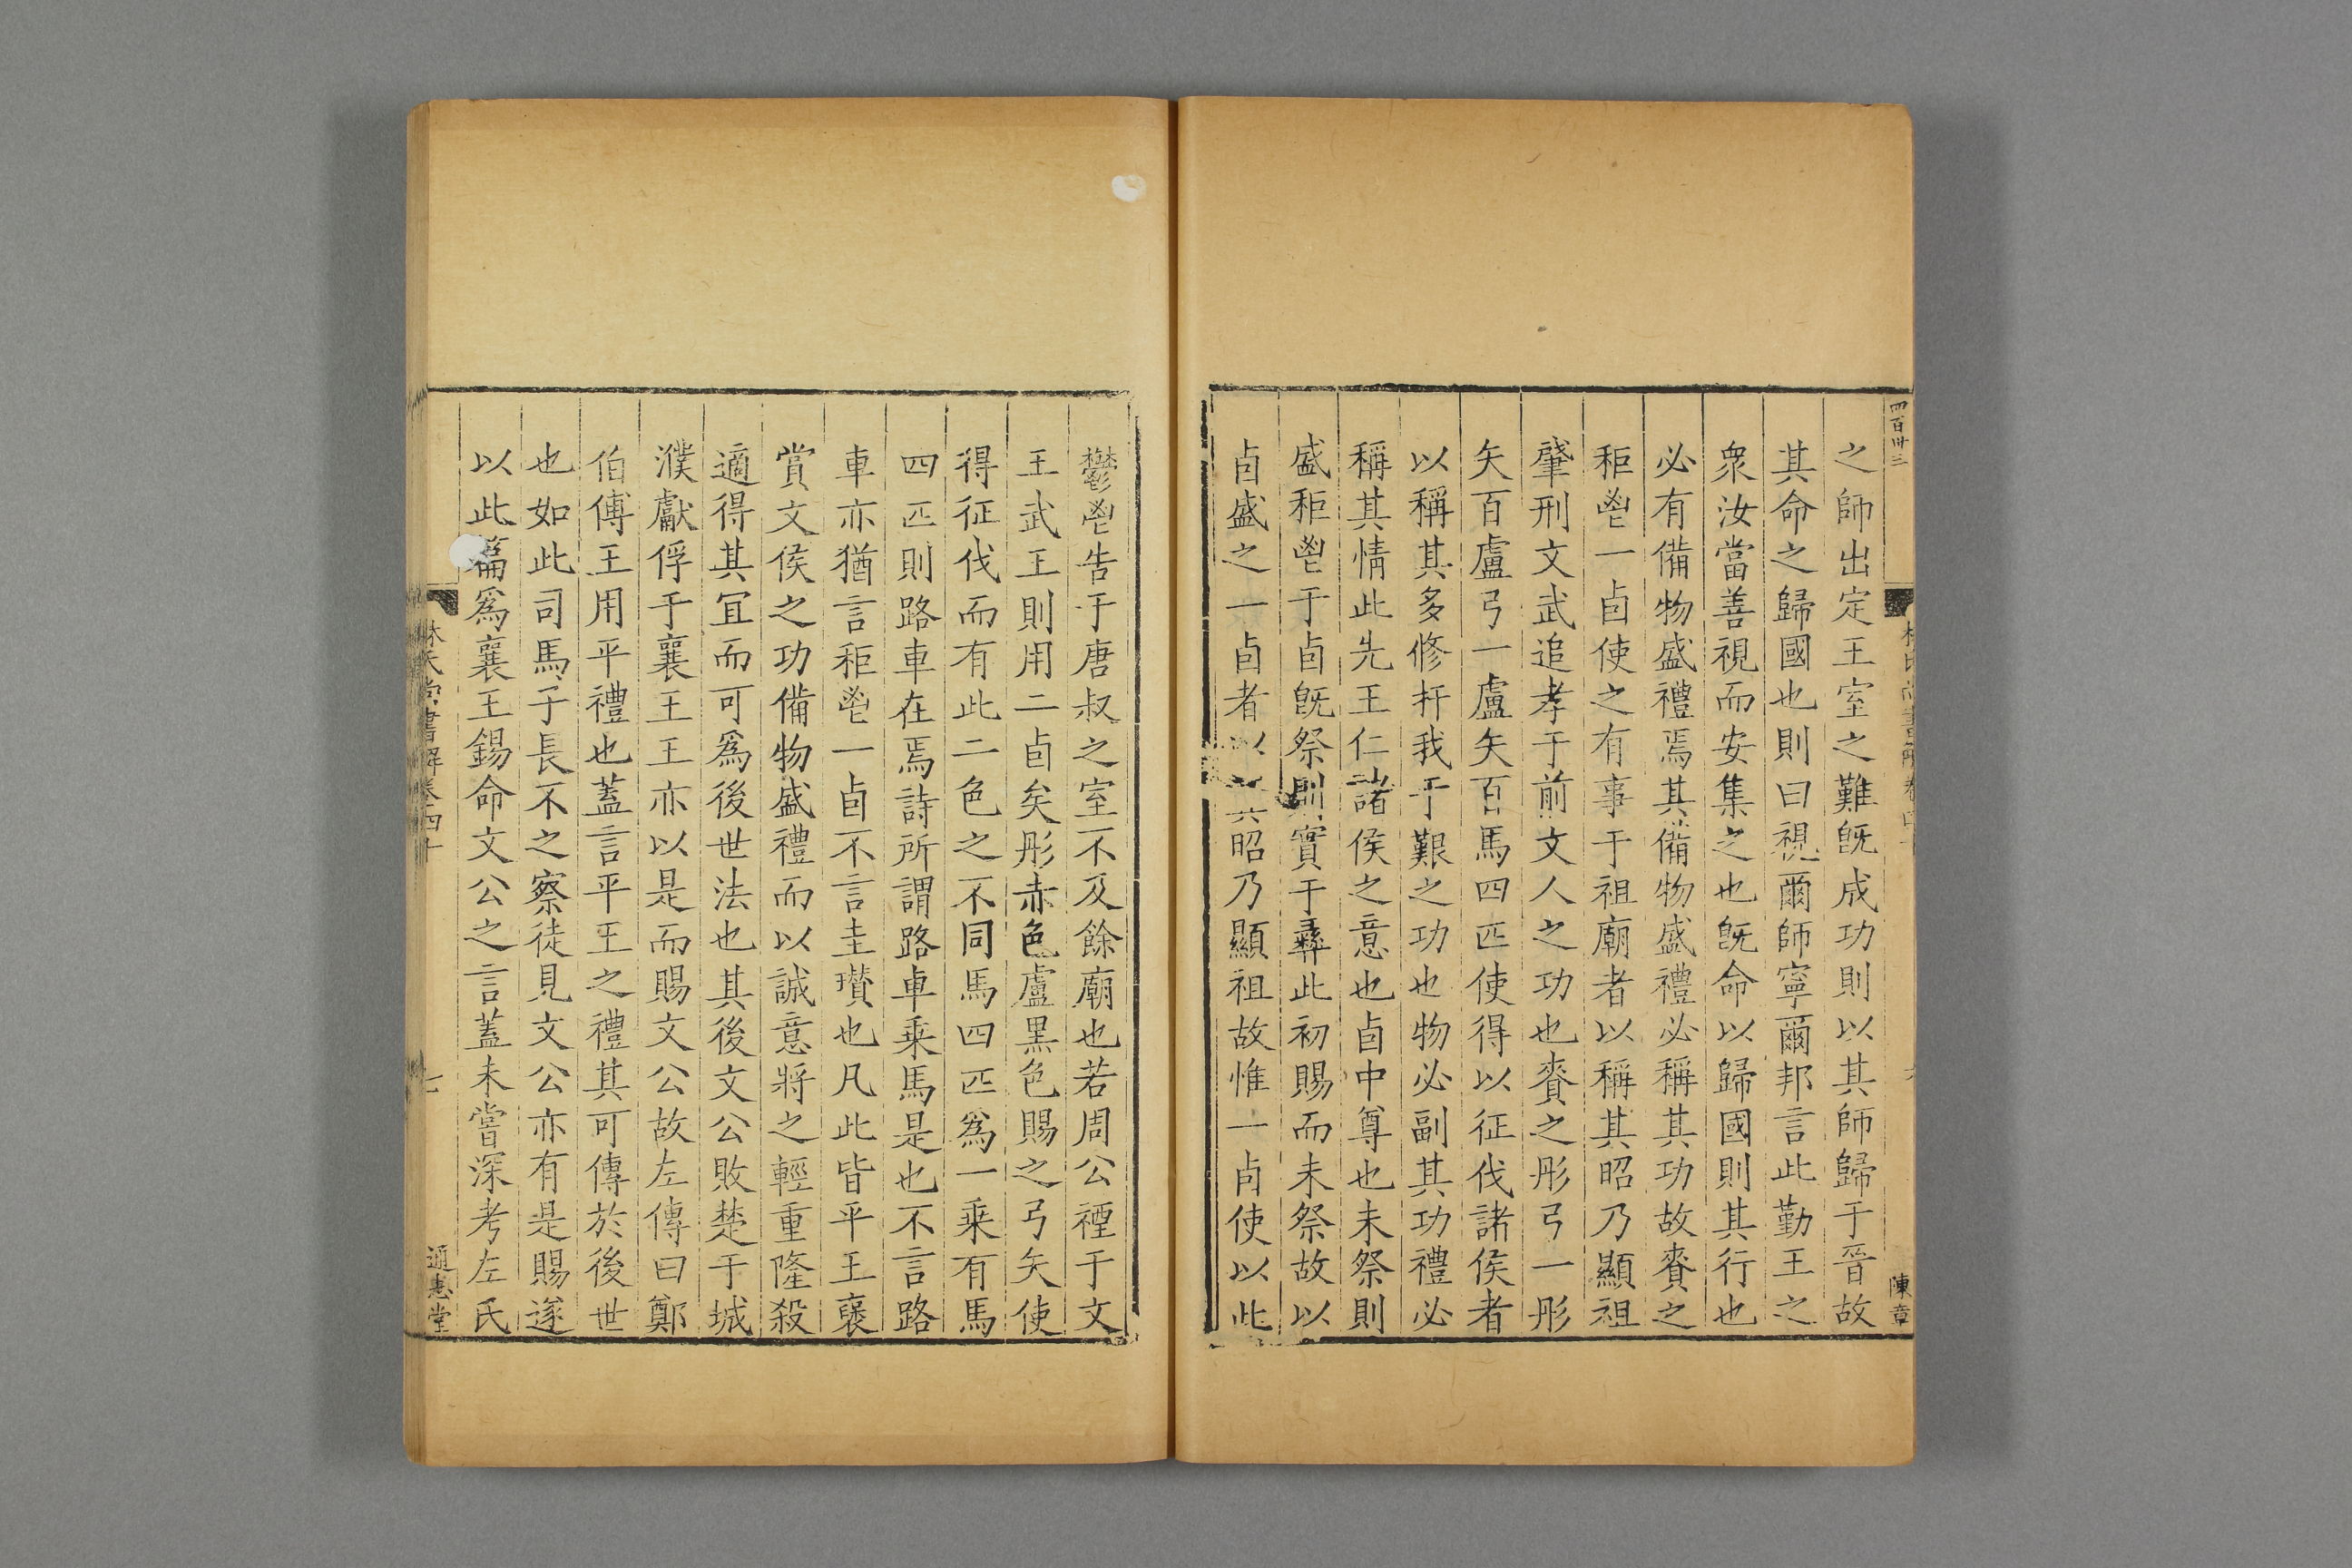 四百卅三
陳章
之師出定王室之難旣成功則以其師歸于晉故
其命之歸國也則曰視爾師寧爾邦言此勤王之
衆汝當善視而安集之也旣命以歸國則其行也
必有備物盛禮焉其備物盛禮必稱其功故賚之
秬鬯一卣使之有事于祖廟者以稱其昭乃顯祖
肇刑文武追孝于前文人之功也賚之彤弓一彤
矢百盧弓一盧矢百馬四匹使得以征伐諸侯者
以稱其多修扞我于艱之功也物必副其功禮必
稱其情此先王仁諸侯之意也卣中尊也未祭則
盛秬鬯于卣旣祭則實于彝此初賜而未祭故以
卣盛之一卣者以昭乃顯祖故惟一卣使以此
鬱鬯告于唐叔之室不及餘廟也若周公禋于文
王武王則用二卣矣彤赤色盧黑色賜之弓矢使
得征伐而有此二色之不同馬四匹爲一乘有馬
四匹則路車在焉詩所謂路車乘馬是也不言路
車亦猶言秬鬯一卣不言圭瓚也凡此皆平王襃
賞文侯之功備物盛禮而以誠意將之輕重隆殺
適得其宜而可爲後世法也其後文公敗楚于城
濮獻俘于襄王王亦以是而賜文公故左傳曰鄭
伯傅王用平禮也蓋言平王之禮其可傳於後世
也如此司馬子長不之察徒見文公亦有是賜遂
以此篇爲襄王錫命文公之言蓋未嘗深考左氏
林氏尚書解卷四十
七
通志堂